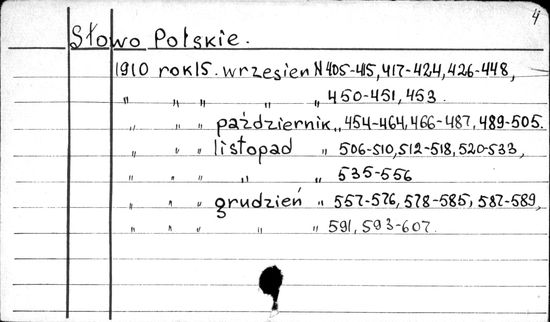 4
Słowo Polskie.
1910 rok 15. wrzesien N 405-415, 417-424, 426-448,
" " " " " 450-451, 453.
" " " październik " 454-464, 466-487, 489-505.
" " " listopad " 506-510, 512-518, 520-533,
" " " " " 535-556
" " " grudzień " 557-576, 578-585, 587-589,
" " " " " 591, 593-607.